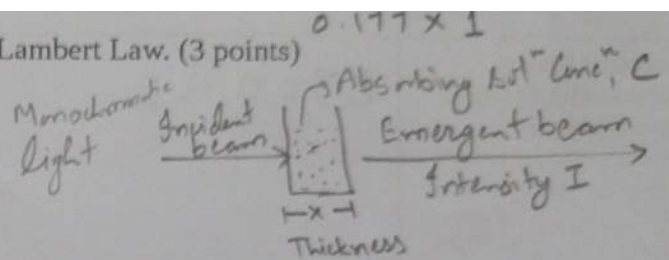 0.177 x 1
Lambert Law. (3 points)
Absorbing solⁿ Concⁿ, C
Monochromatic light
Incident beam
Emergent beam
Intensity I
x
Thickness